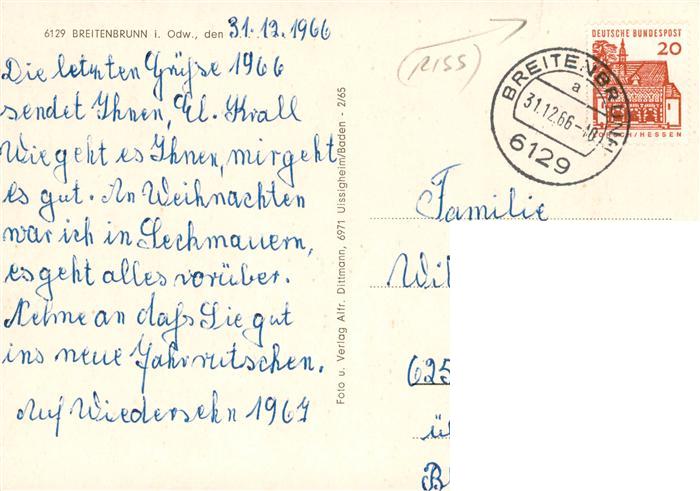 6129 BREITENBRUNN i. Odw., den 31.12.1966
Die letzten Grüße 1966
sendet Ihnen, El. Krall
Wie geht es Ihnen, mir geht
es gut. An Weihnachten
war ich in Seckmauern,
es geht alles vorüber.
Nehme an daß Sie gut
ins neue Jahr rutschen.
Auf Wiedersehn 1967
Foto u. Verlag Alfr. Dittmann, 6971 Uissigheim/Baden - 2/65
(RISS)
BREITENBRUNN
a
31.12.66-18
6129
DEUTSCHE BUNDESPOST
20
/HESSEN
Familie
Wil
625
ü
B